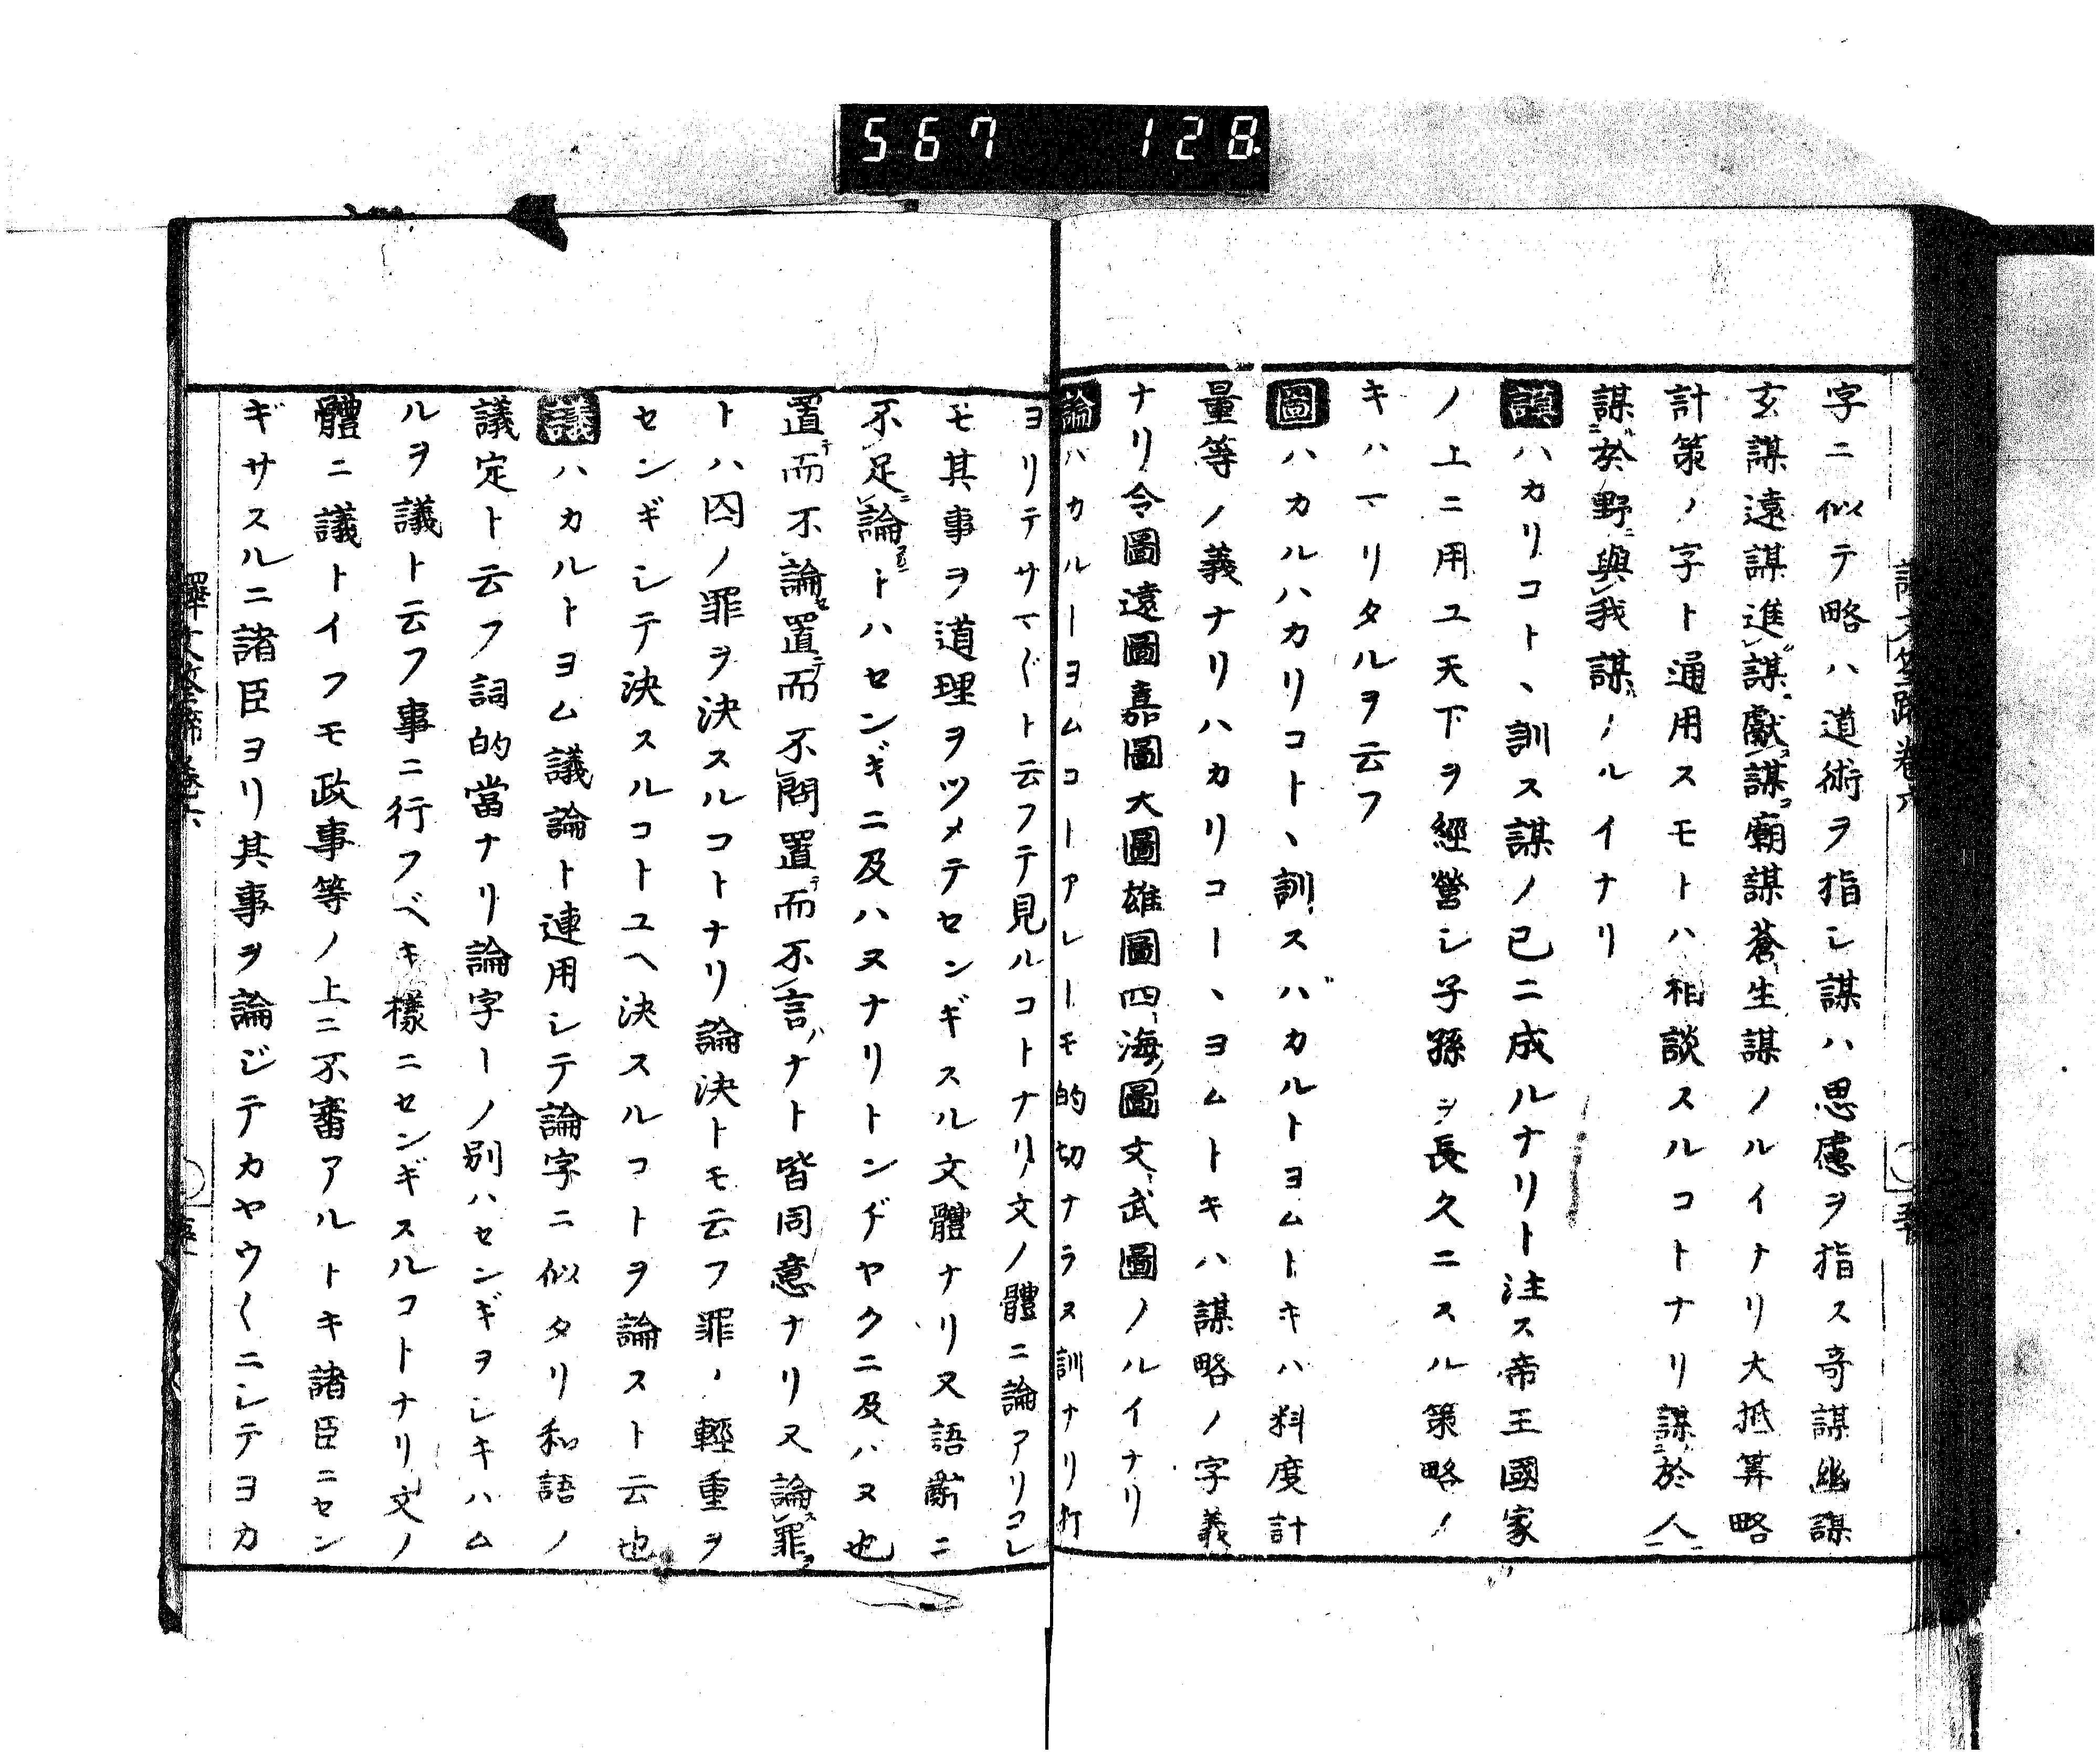 567 128
字ニ似テ略ハ道術ヲ指シ謀ハ思慮ヲ指ス奇謀幽謀
玄謀遠謀進謀獻謀廟謀蒼生謀ノルイナリ大抵筭略
計策ノ字ト通用スモトハ相談スルコトナリ謀於人
謀於野與我謀ノルイナリ
謨ハカリコト、訓ス謀ノ已ニ成ルナリト注ス帝王國家
ノ上ニ用ユ天下ヲ經營シ子孫ヲ長久ニスル策略ノ
キハマリタルヲ云フ
圖ハカルハカリコト、訓スハカルトヨムトキハ料度計
量等ノ義ナリハカリコー、ヨムトキハ謀略ノ字義
ナリ令圖遠圖嘉圖大圖雄圖四海圖文武圖ノルイナリ
論ハカルーヨムコーアレーモ的切ナラヌ訓ナリ打
ヨリテサマ〲ト云フテ見ルコトナリ文ノ體ニ論アリコレ
モ其事ヲ道理ヲツメテセンギスル文體ナリ又語辭ニ
不足論トハセンギニ及ハヌナリトンヂヤクニ及ハヌ也
置而不論置而不問置而不言ナト皆同意ナリ又論罪
トハ囚ノ罪ヲ決スルコトナリ論決トモ云フ罪ノ輕重ヲ
センギシテ決スルコトユヘ決スルコトヲ論スト云也
議ハカルトヨム議論ト連用シテ論字ニ似タリ和語ノ
議定ト云フ詞的當ナリ論字ーノ別ハセンギヲシキハム
ルヲ議ト云フ事ニ行フベキ樣ニセンギスルコトナリ文ノ
體ニ議トイフモ政事等ノ上ニ不審アルトキ諸臣ニセン
ギサスルニ諸臣ヨリ其事ヲ論ジテカヤウ〱ニシテヨカ
譯文筌蹄卷六